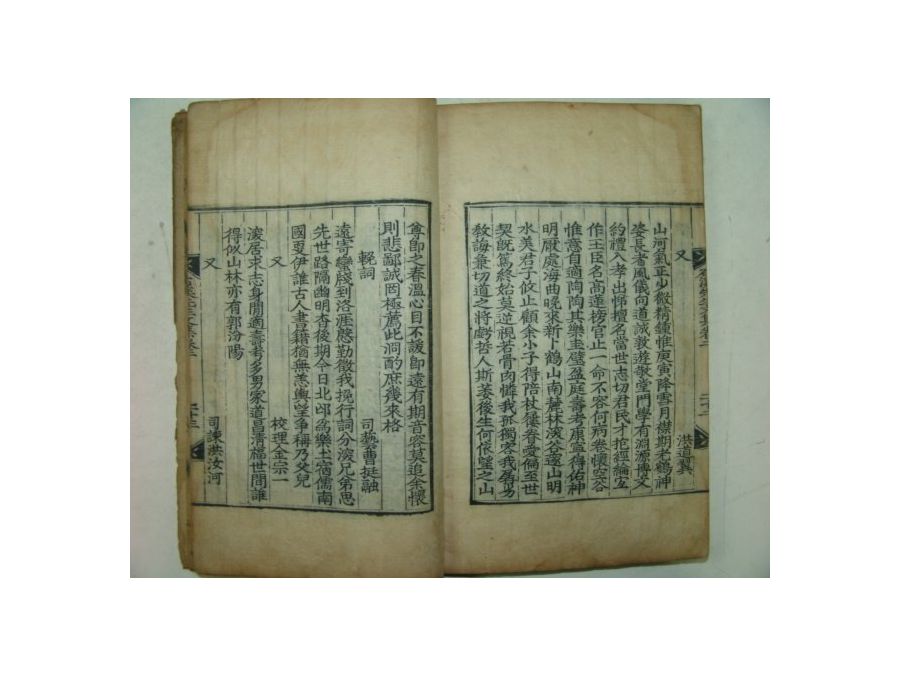 又 洪道翼
山河氣正少微精鍾惟庚寅降雪月襟期老鶴神
姿長者風儀向道誠敦遊敬堂門學有淵源博文
約禮入孝出悌擅名當世志切君民才抱經綸宜
作王臣名高蓮榜官止一命不容何病卷懷窮谷
惟意自適陶陶其樂圭璧盈庭壽考康寧得佑神
明厭處海曲晚來新卜鶴山南麓林深谷邃山明
水美君子攸止顧余小子得陪杖屨眷愛偏至世
契旣篤終始莫逆視若骨肉憐我孤獨容我魯方
敎誨兼切道之將虧哲人斯萎後生何依望之山
尊卽之春溫心目不諼卽遠有期音容莫追余懷
則悲鄙誠罔極薦此洞酌庶幾來格
輓詞 司藝曹挺融
遠寄蠻牋到洛涯慇勤徵我挽行詞分深兄弟思
先世路隔幽明杳後期今日北邙爲樂土宿儒南
國更伊誰古人書籍猶無恙輿望爭稱乃父兒
又 校理金宗一
深居求志身閒適壽考多男家道昌淸福世間誰
得似山林亦有郭汾陽
又 司諫洪汝河